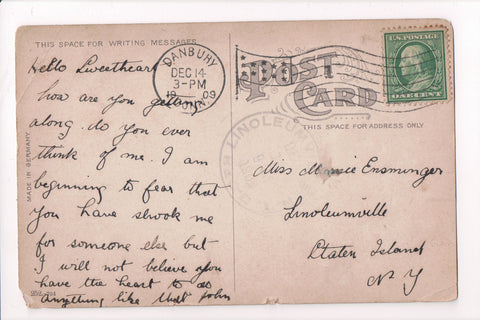 THIS SPACE FOR WRITING MESSAGES
DANBURY
DEC 14
3-PM
1909
CONN.
U.S. POSTAGE
POST
CARD
THIS SPACE FOR ADDRESS ONLY
LINOLEUM
MADE IN GERMANY
Hello Sweetheart
how are you getting
along. do you ever
think of me. I am
beginning to fear that
you have shook me
for someone else but
I will not believe you
have the heart to do
anything like that John
Miss Mamie Ensminger
Linoleumville
Staten Island
N Y